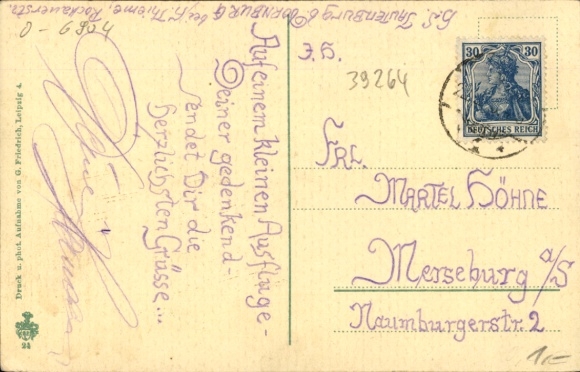 z. Z. TAUTENBURG b DORNBURG bei K. Thieme, Rockauerstr.
O-6904
Auf einem kleinen Ausfluge-
Deiner gedenkend-
sendet Dir die
herzlichsten Grüsse...
Druck u. phot. Aufnahme von G. Friedrich, Leipzig 4.
24
39264
30 30
DEUTSCHES REICH
FRL.
MARTEL HÖHNE
Merseburg a/S
Naumburgerstr. 2
1,-